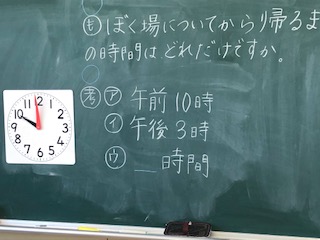 ㋲ ぼく場についてから帰るま
の時間はどれだけですか。
㋕ ㋐ 午前10時
㋑ 午後3時
㋒ __時間
12
1
2
3
4
5
6
7
8
9
10
11